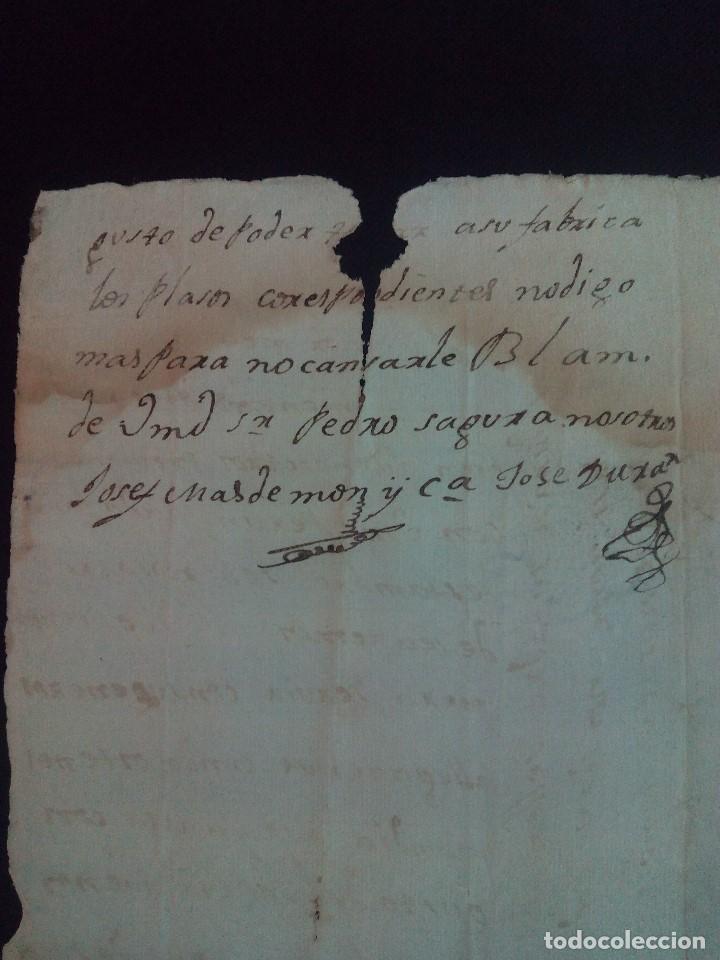 gusto de poder asu fabrica
los plasos corespondientes nodigo
mas para no cansarle B l a m.
de Vmd sr Pedro sagura nosotros
Josef Masdemon ÿ Ca Jose Duran
todocoleccion